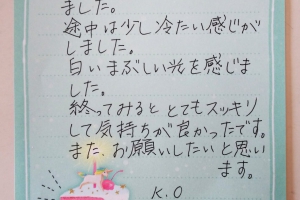 ました。
途中は少し冷たい感じが
しました。
白いまぶしい光を感じま
した。
終ってみると とてもスッキリ
して気持ちが良かったです。
また、お願いしたいと思い
ます。
K.O